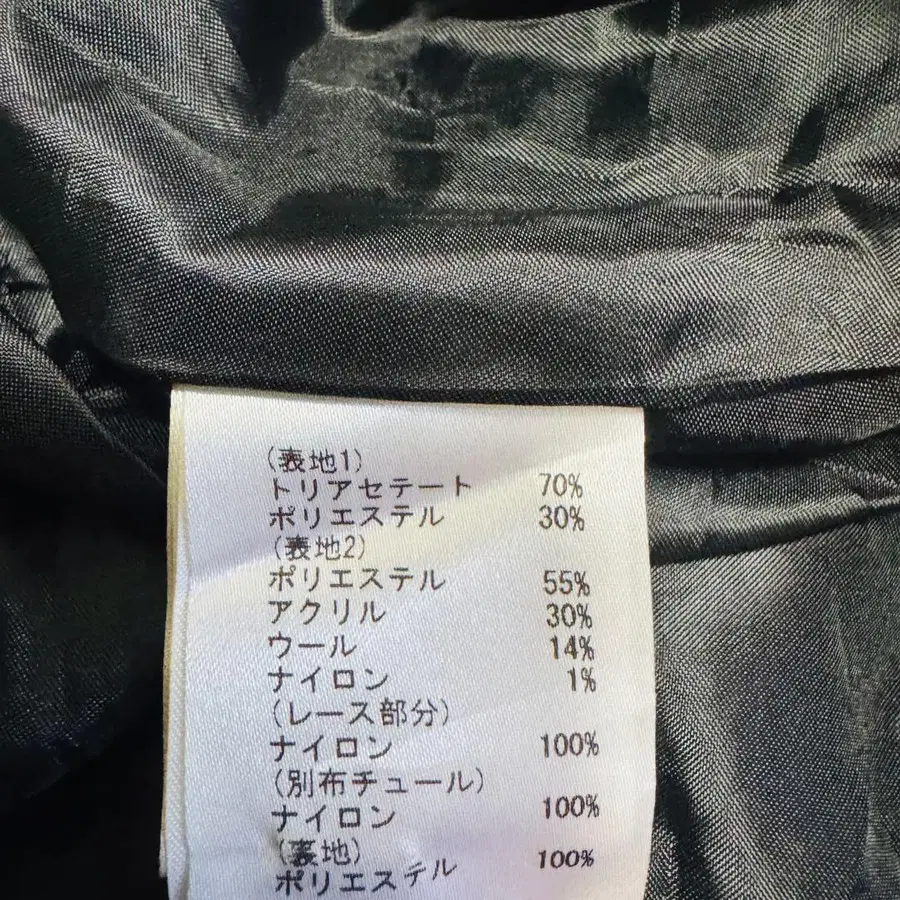 (表地1)
トリアセテート 70%
ポリエステル 30%
(表地2)
ポリエステル 55%
アクリル 30%
ウール 14%
ナイロン 1%
(レース部分)
ナイロン 100%
(別布チュール)
ナイロン 100%
(裏地)
ポリエステル 100%